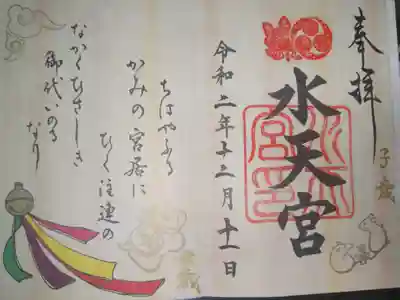 奉拝
子歳
水天宮
水天宮印
令和二年十二月十一日
ちはやふる
かみの宮居に
ひく注連の
なかくひさしき
御代いのる
なり